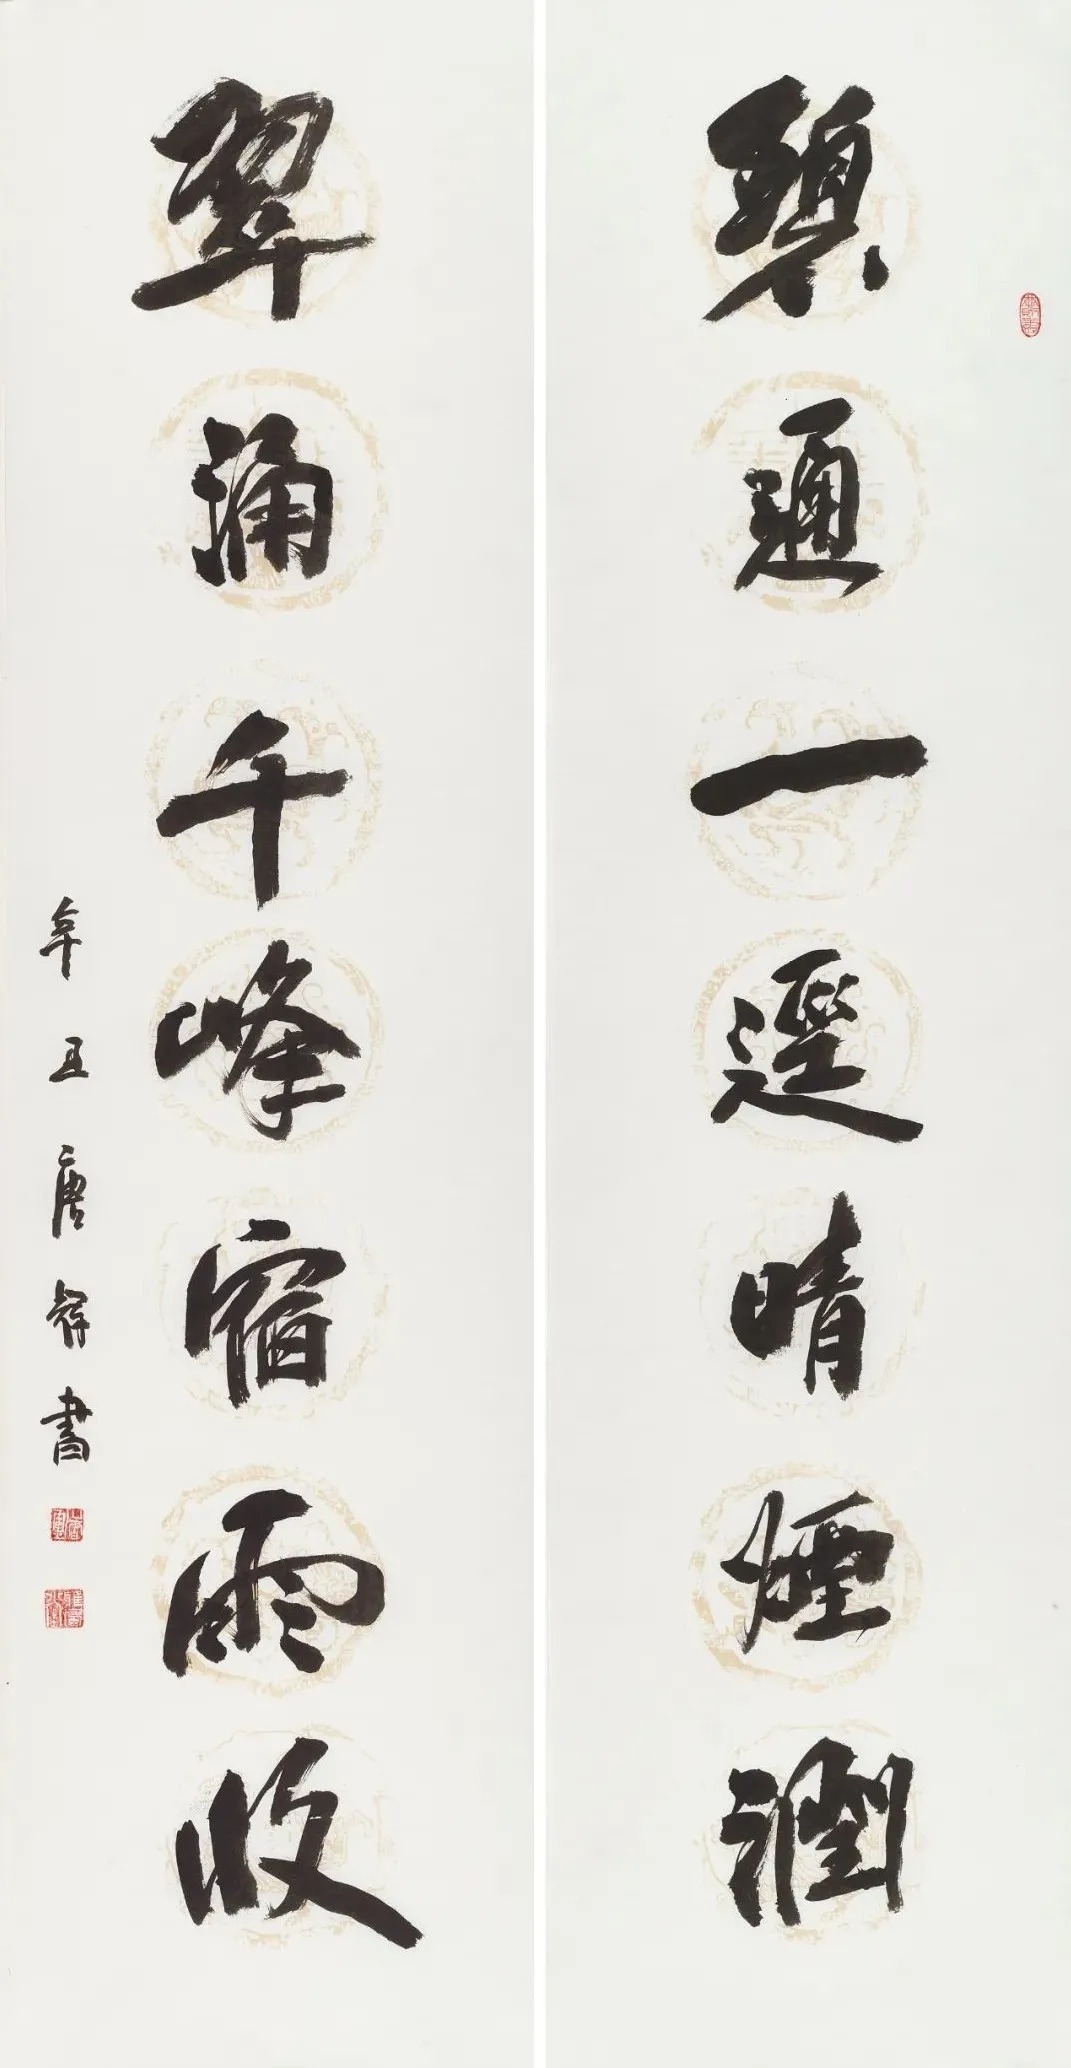 碧通一逕晴煙潤
翠涌千峰宿雨收
辛丑唐輝書